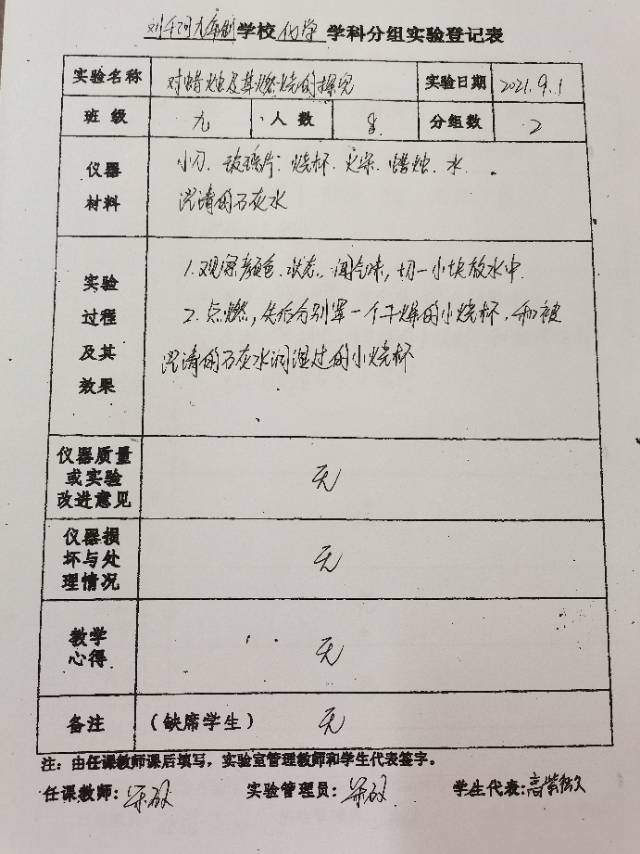 学校 化学 学科分组实验登记表
实验名称 对蜡烛及其燃烧的探究 实验日期 2021.9.1
班级 九 人数 分组数 2
仪器材料 小刀、玻璃片、烧杯、火柴、蜡烛、水、
澄清的石灰水
实验过程及其效果
1.观察颜色、状态、闻气味,切一小块放水中.
2.点燃,先后分别罩一个干燥的小烧杯,和被
澄清的石灰水润湿过的小烧杯
仪器质量或实验改进意见 无
仪器损坏与处理情况 无
教学心得 无
备注 (缺席学生) 无
注:由任课教师课后填写,实验室管理教师和学生代表签字。
任课教师: 实验管理员: 学生代表:高紫